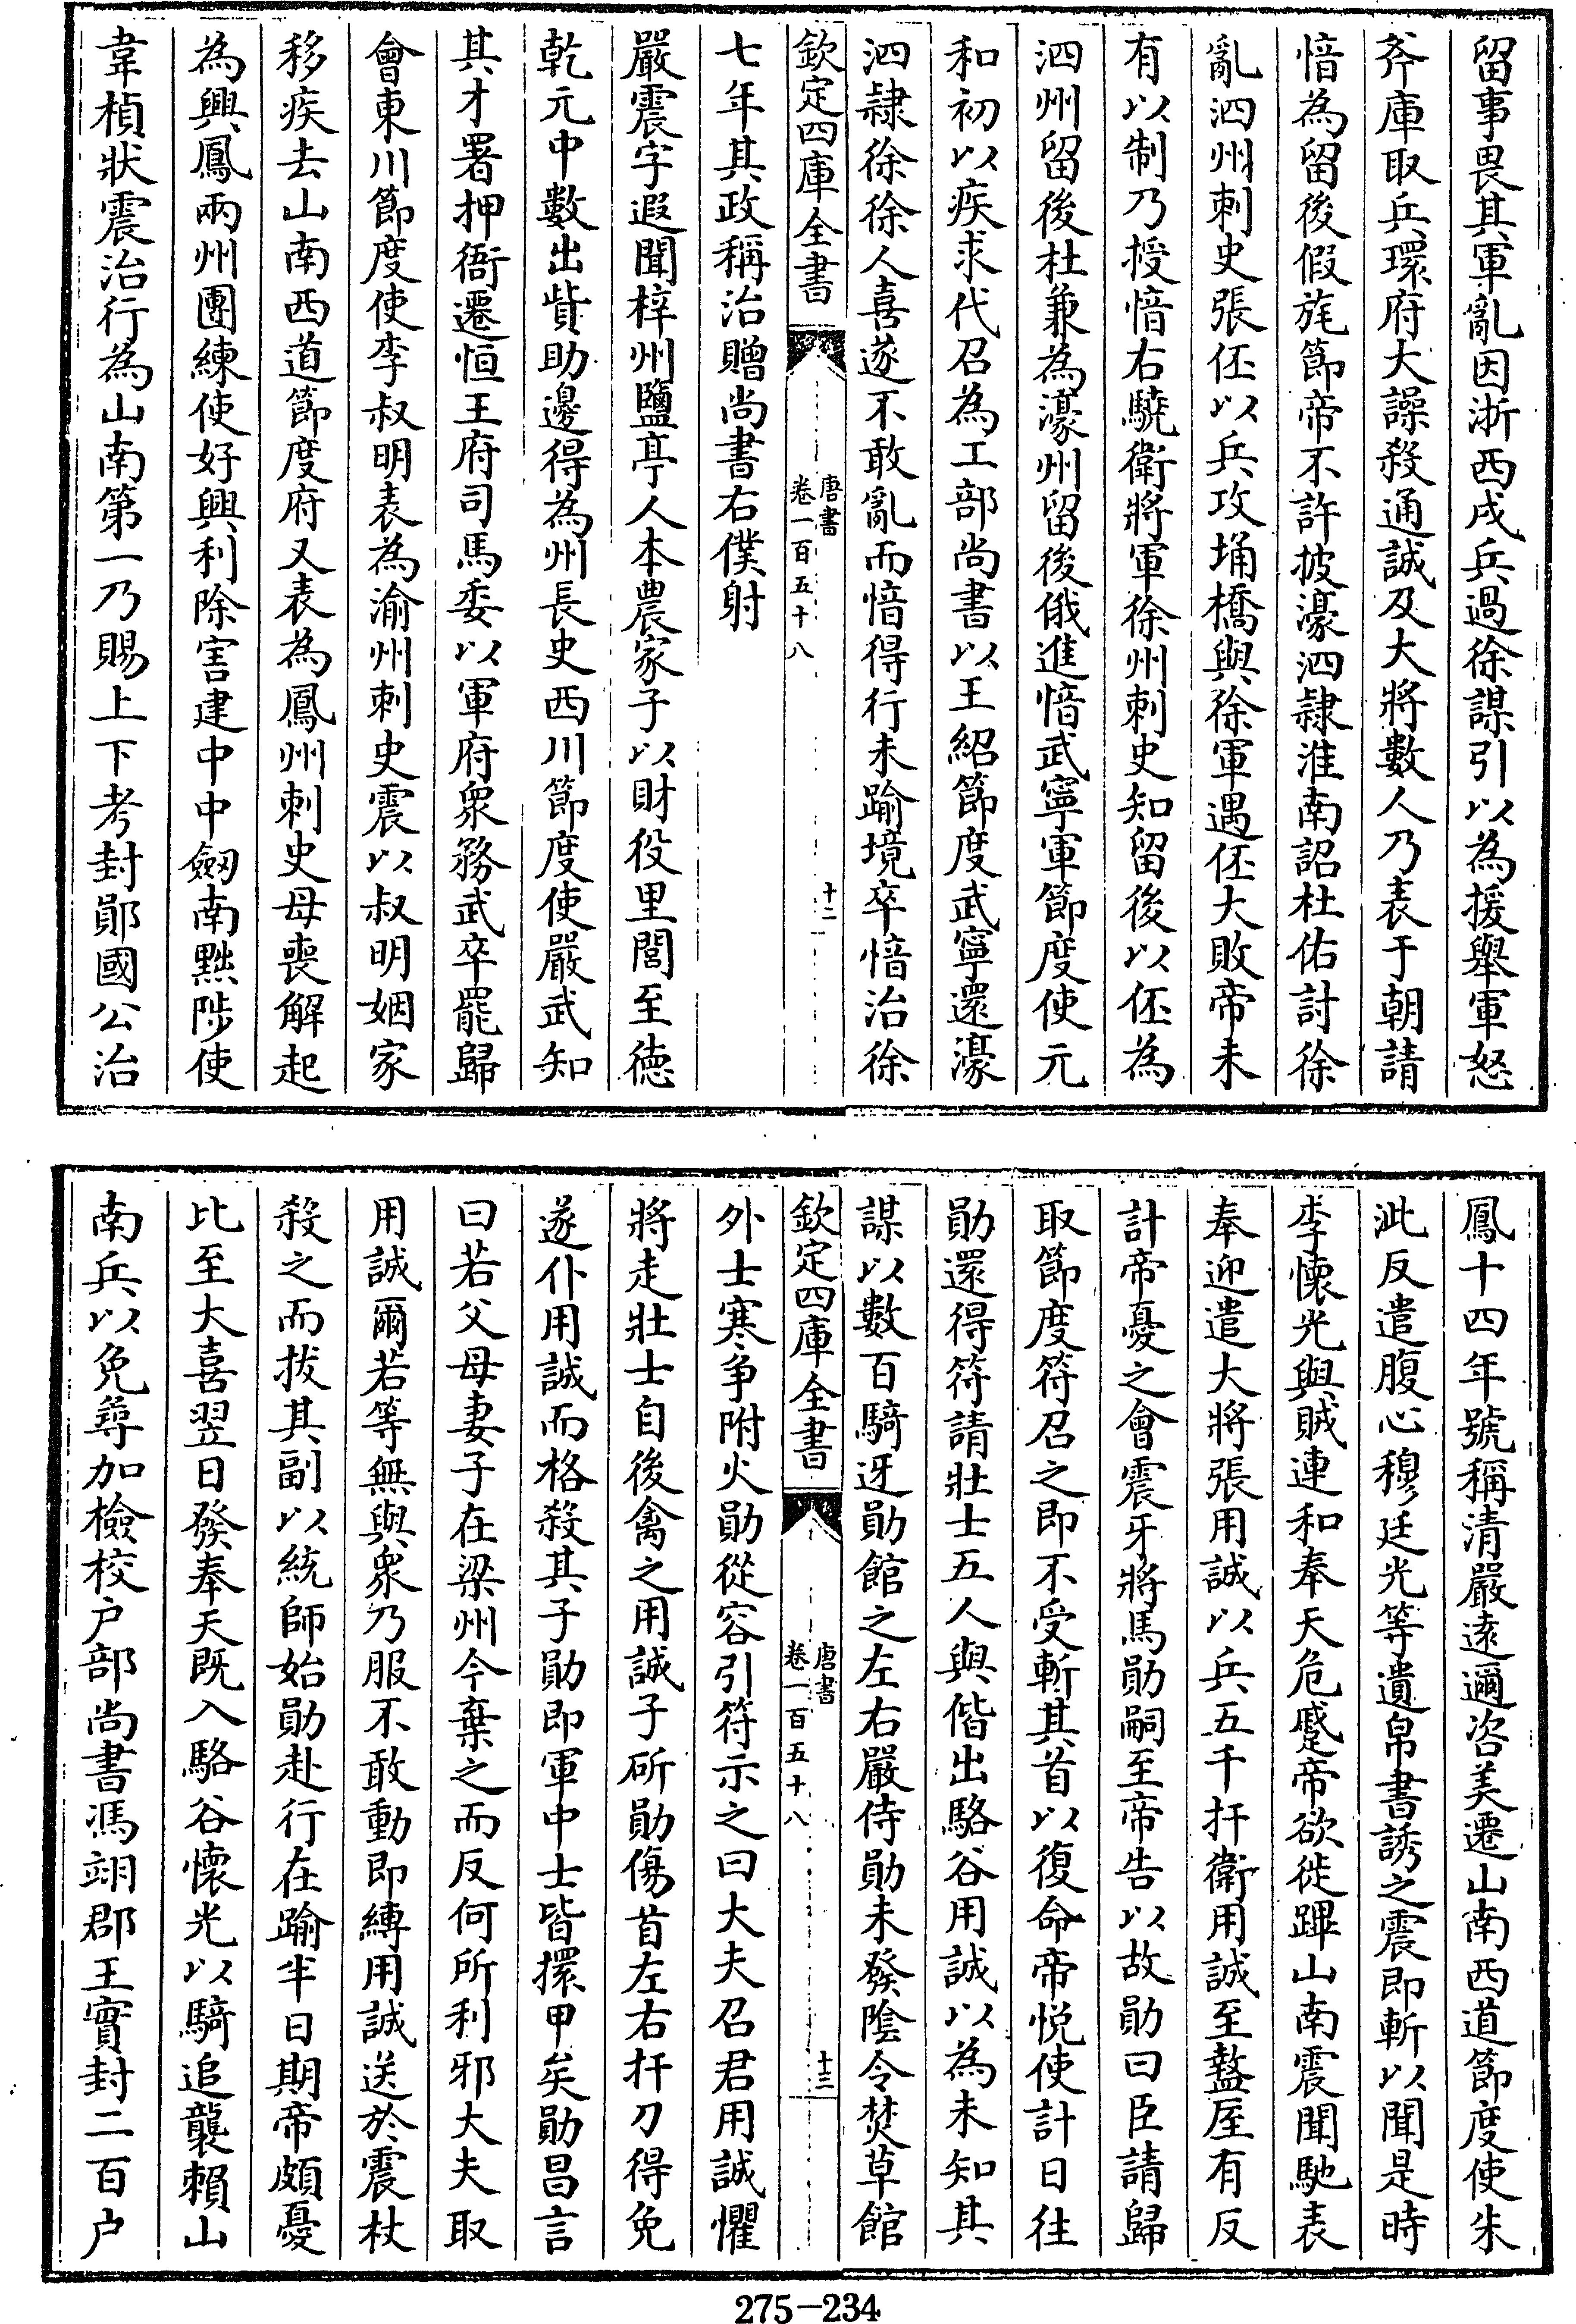 留事畏其軍亂因浙西戍兵過徐謀引以為援舉軍怒
斧庫取兵環府大譟殺通誠及大將數人乃表于朝請
愔為留後假旄節帝不許披濠泗隷淮南詔杜佑討徐
亂泗州刺史張伾以兵攻埇橋與徐軍遇伾大敗帝未
有以制乃授愔右驍衛將軍徐州刺史知留後以伾為
泗州留後杜兼為濠州留後俄進愔武寧軍節度使元
和初以疾求代召為工部尚書以王紹節度武寧還濠
泗隷徐徐人喜遂不敢亂而愔得行未踰境卒愔治徐
欽定四庫全書
唐書
卷一百五十八
十二
七年其政稱治贈尚書右僕射
嚴震字遐聞梓州鹽亭人本農家子以財役里閭至德
乾元中數出貲助邊得為州長史西川節度使嚴武知
其才署押衙遷恒王府司馬委以軍府衆務武卒罷歸
會東川節度使李叔明表為渝州刺史震以叔明姻家
移疾去山南西道節度府又表為鳳州刺史母喪解起
為興鳳兩州團練使好興利除害建中中劔南黜陟使
韋楨狀震治行為山南第一乃賜上下考封鄖國公治
鳳十四年號稱清嚴逺邇咨美遷山南西道節度使朱
泚反遣腹心穆廷光等遺帛書誘之震即斬以聞是時
李懷光與賊連和奉天危蹙帝欲徙蹕山南震聞馳表
奉迎遣大將張用誠以兵五千扞衛用誠至盩厔有反
計帝憂之會震牙將馬勛嗣至帝告以故勛曰臣請歸
取節度符召之即不受斬其首以復命帝悅使計日往
勛還得符請壯士五人與偕出駱谷用誠以為未知其
謀以數百騎迓勛館之左右嚴侍勛未發陰令焚草館
欽定四庫全書
唐書
卷一百五十八
十三
外士寒争附火勛從容引符示之曰大夫召君用誠懼
將走壯士自後禽之用誠子斫勛傷首左右扞刀得免
遂仆用誠而格殺其子勛即軍中士皆擐甲矣勛昌言
曰若父母妻子在梁州今棄之而反何所利邪大夫取
用誠爾若等無與衆乃服不敢動即縛用誠送於震杖
殺之而拔其副以統師始勛赴行在踰半日期帝頗憂
比至大喜翌日發奉天既入駱谷懷光以騎追襲賴山
南兵以免尋加檢校户部尚書馮翊郡王實封二百户
275-234